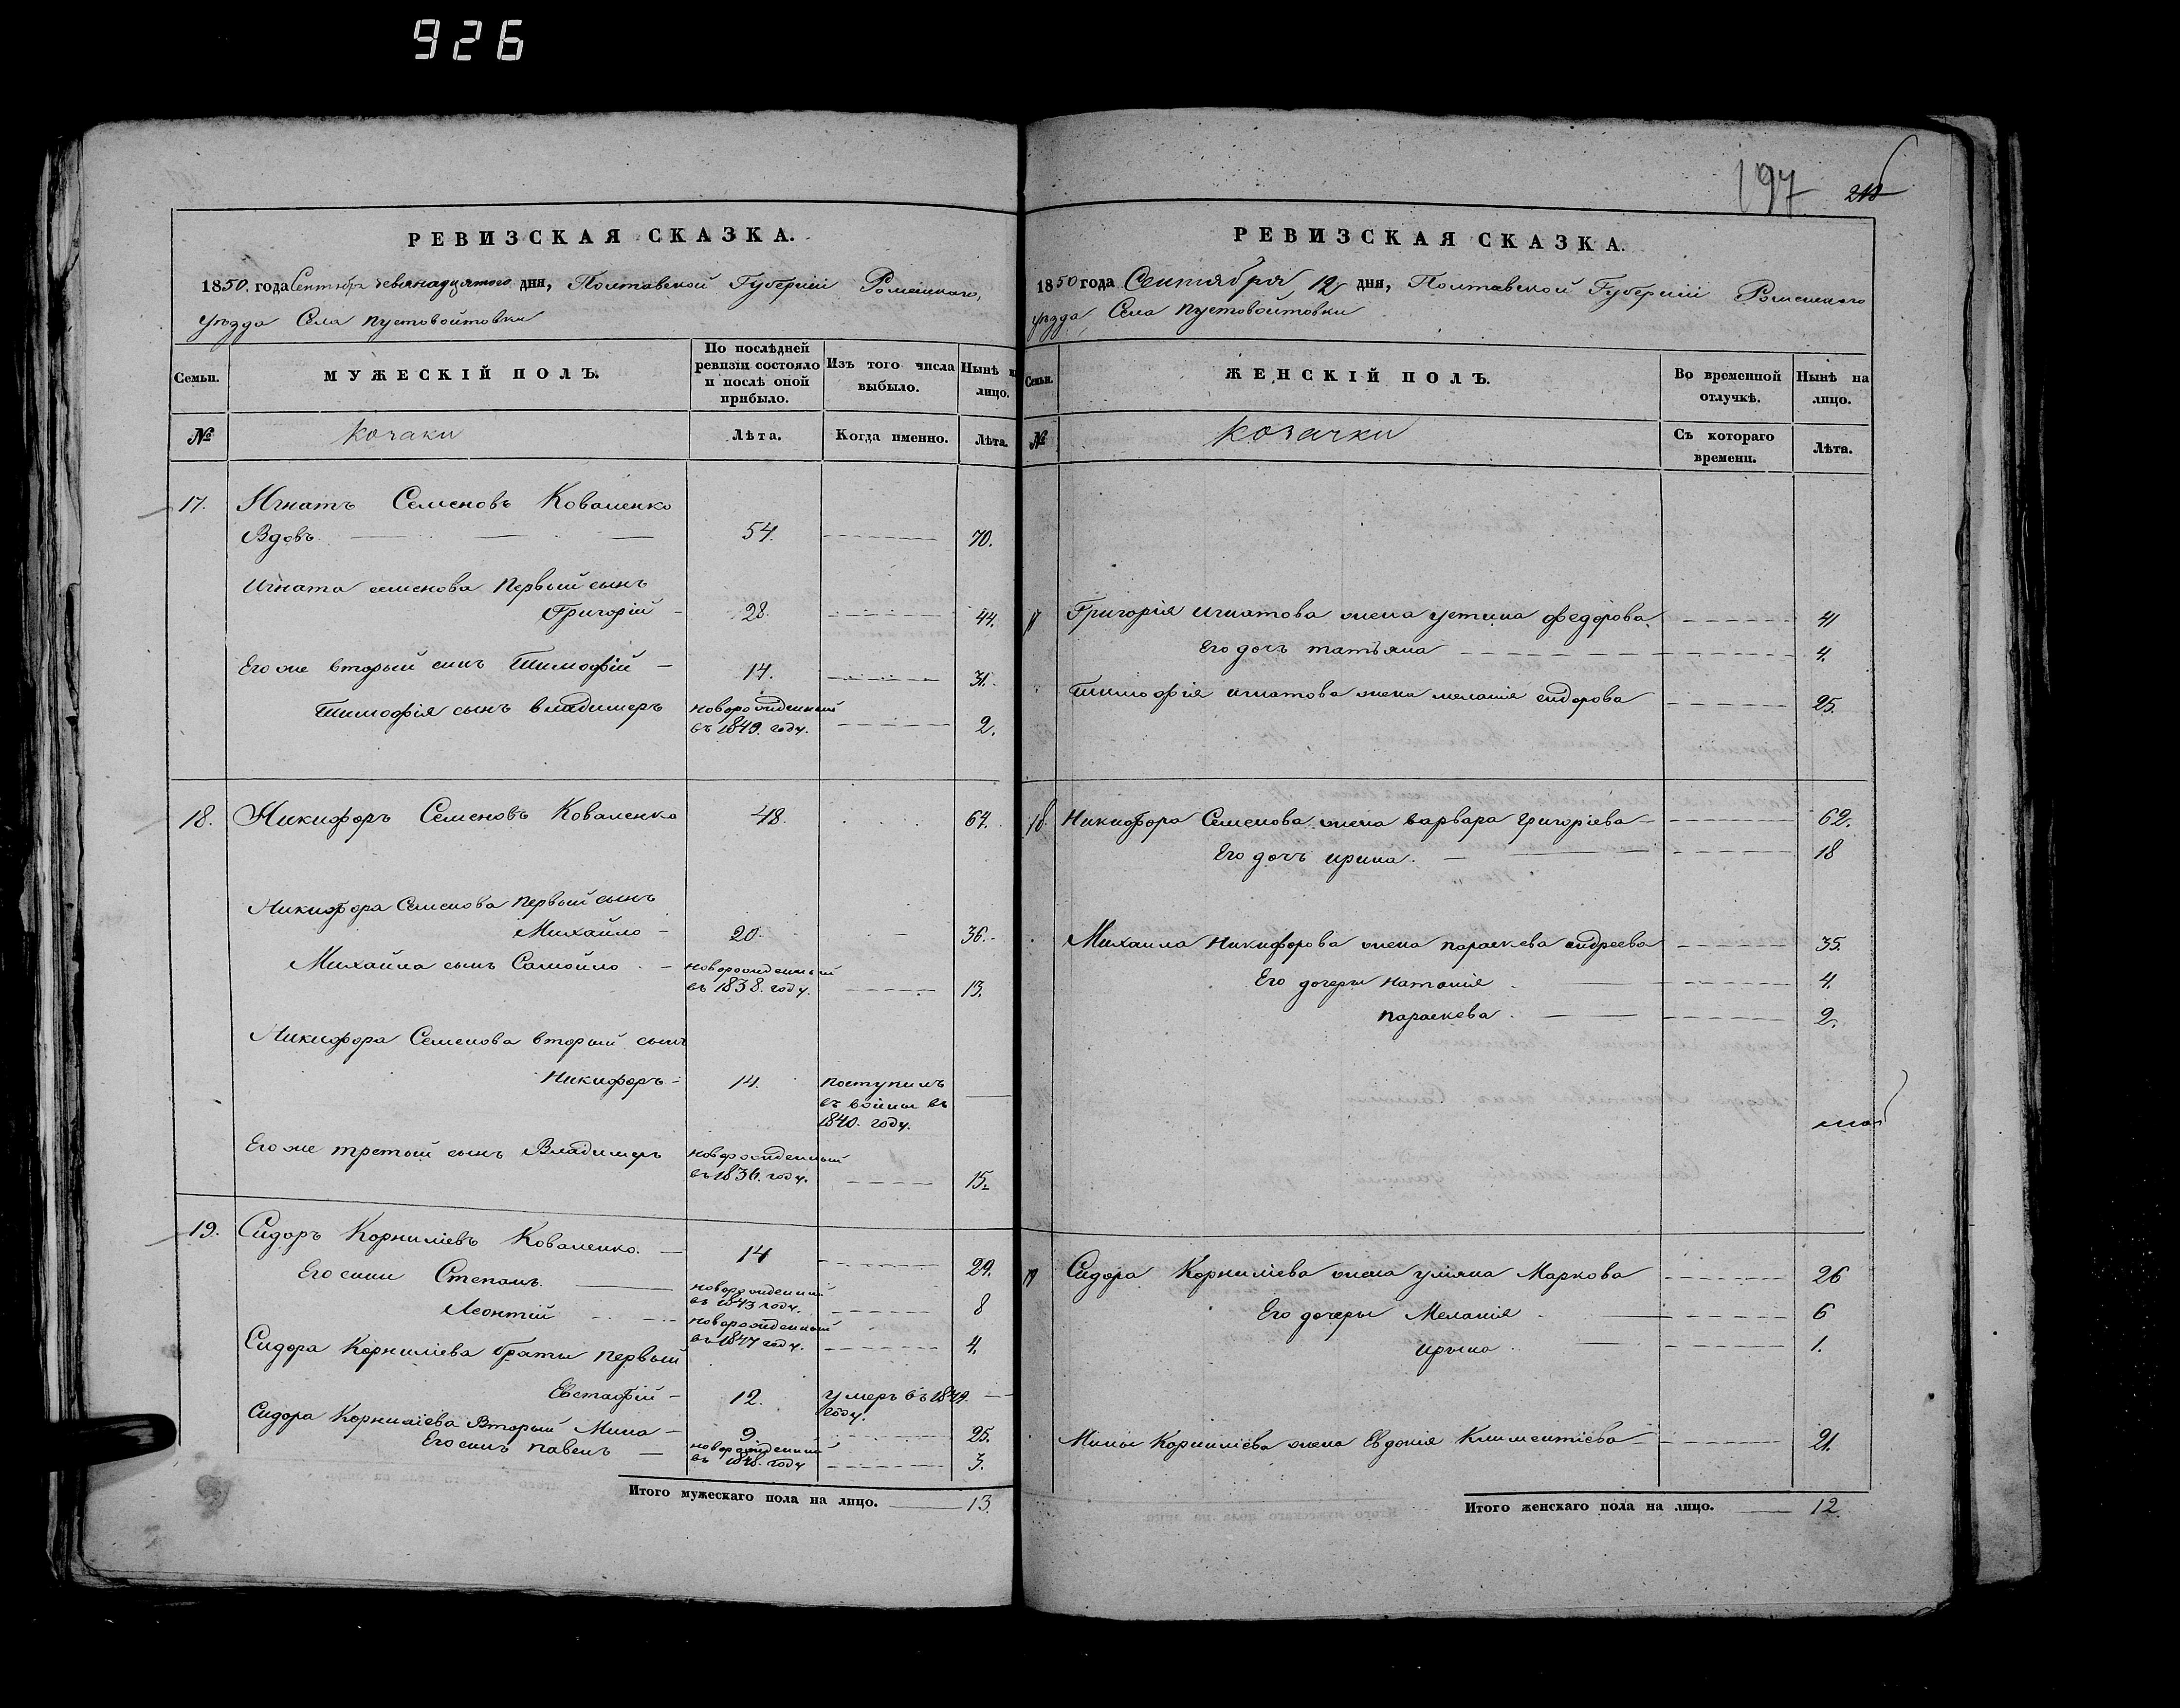 926
РЕВИЗСКАЯ СКАЗКА.
1850. года Сентября девянадцятого дня, Полтавской Губерніи Роменскаго,
уѣзда Села Пустовойтовки
Семьи.
МУЖЕСКІЙ ПОЛЪ.
По послѣдней ревизіи состояло и послѣ оной прибыло.
Изъ того числа выбыло.
Нынѣ на лицо.
№
козаки
Лѣта.
Когда именно.
Лѣта.
17. Игнатъ Семеновъ Коваленко
Вдовъ 54. 70.
Игната семенова первый сынъ
Григорій 28. 44.
Его же вторый сынъ Тимофій 14. 31.
Тимофія сынъ владимеръ новорожденный
въ 1849. году. 2.
18. Никифоръ Семеновъ Коваленко 48. 64.
Никифора Семенова первый сынъ
Михайло 20. 36.
Михайла сынъ Самойло новорожденный
въ 1838. году. 13.
Никифора Семенова вторый сынъ
Никифоръ 14. поступилъ
въ воины въ
1840. году.
Его же третій сынъ Владимеръ новорожденный
въ 1836. году. 15.
19. Сидоръ Корниліевъ Коваленко. 14 29.
Его сыни Степанъ новорожденний
въ 1843 году. 8
Леонтій новорожденный
въ 1847 году. 4.
Сидора Корниліева браты первый
Евстафій 12. умеръ въ 1849.
году.
Сидора Корниліева Вторый Мина 9 25.
Его сынъ павелъ новорожденний
въ 1848. году 3.
Итого мужескаго пола на лицо. 13
197
РЕВИЗСКАЯ СКАЗКА.
1850 года Сентября 12 дня, Полтавской Губерніи Роменскаго
уѣзда, Села Пустовойтовки
Семьи.
ЖЕНСКІЙ ПОЛЪ.
Во временной отлучкѣ.
Нынѣ на лицо.
№
козачки
Съ котораго времени.
Лѣта.
17 Григорія игнатова жена устина федорова 41
Его дочъ татьяна 4.
тимофія игнатова жена меланія сидорова 25.
18 Никифора Семенова жена варвара григоріева 62.
Его дочъ ирина. 18
Михаила Никифорова жена параскева андреева 35.
Его дочери наталія 4.
параскева 2.
19 Сидора Корниліева жена уляна Маркова 26
Его дочеры Меланія 6
ирына 1.
Мины Корниліева жена Евдокія Климентіева 21.
Итого женскаго пола на лицо. 12.